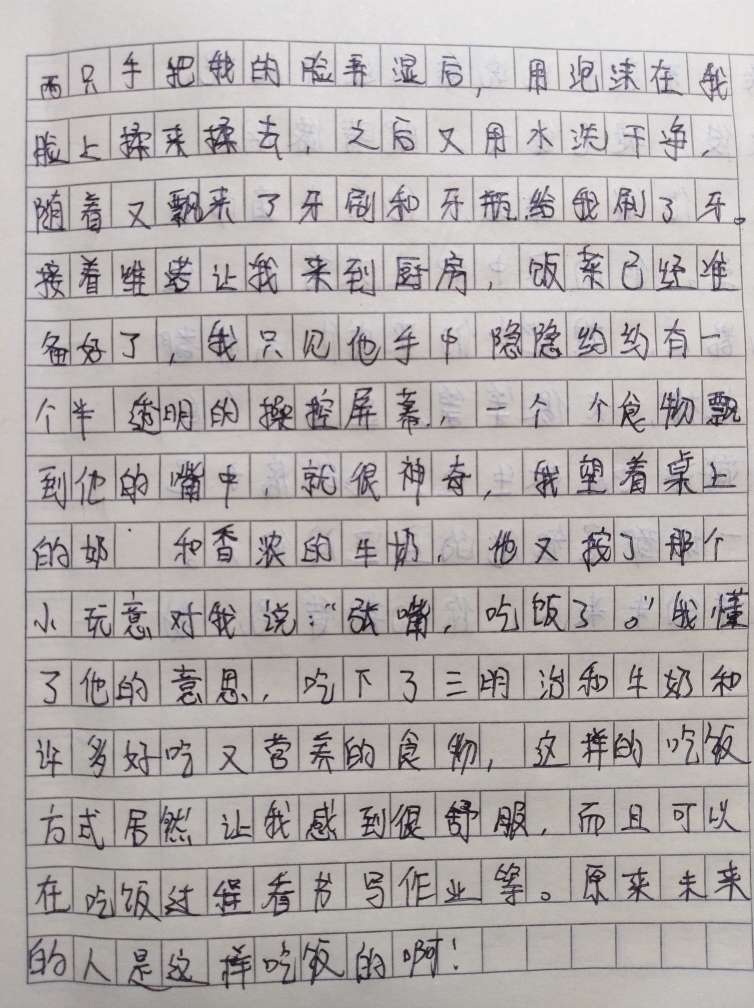 两只手把我的脸弄湿后，用泡沫在我
脸上揉来揉去，之后又用水洗干净，
随着又飘来了牙刷和牙瓶给我刷了牙。
接着维诺让我来到厨房，饭菜已经准
备好了，我只见他手中隐隐约约有一
个半透明的操控屏幕，一个个食物飘
到他的嘴中，就很神奇，我望着桌上
的奶 和香浓的牛奶，他又按了那个
小玩意对我说：“张嘴，吃饭了。”我懂
了他的意思，吃下了三明治和牛奶和
许多好吃又营养的食物，这样的吃饭
方式居然让我感到很舒服，而且可以
在吃饭过程看书写作业等。原来未来
的人是这样吃饭的啊！